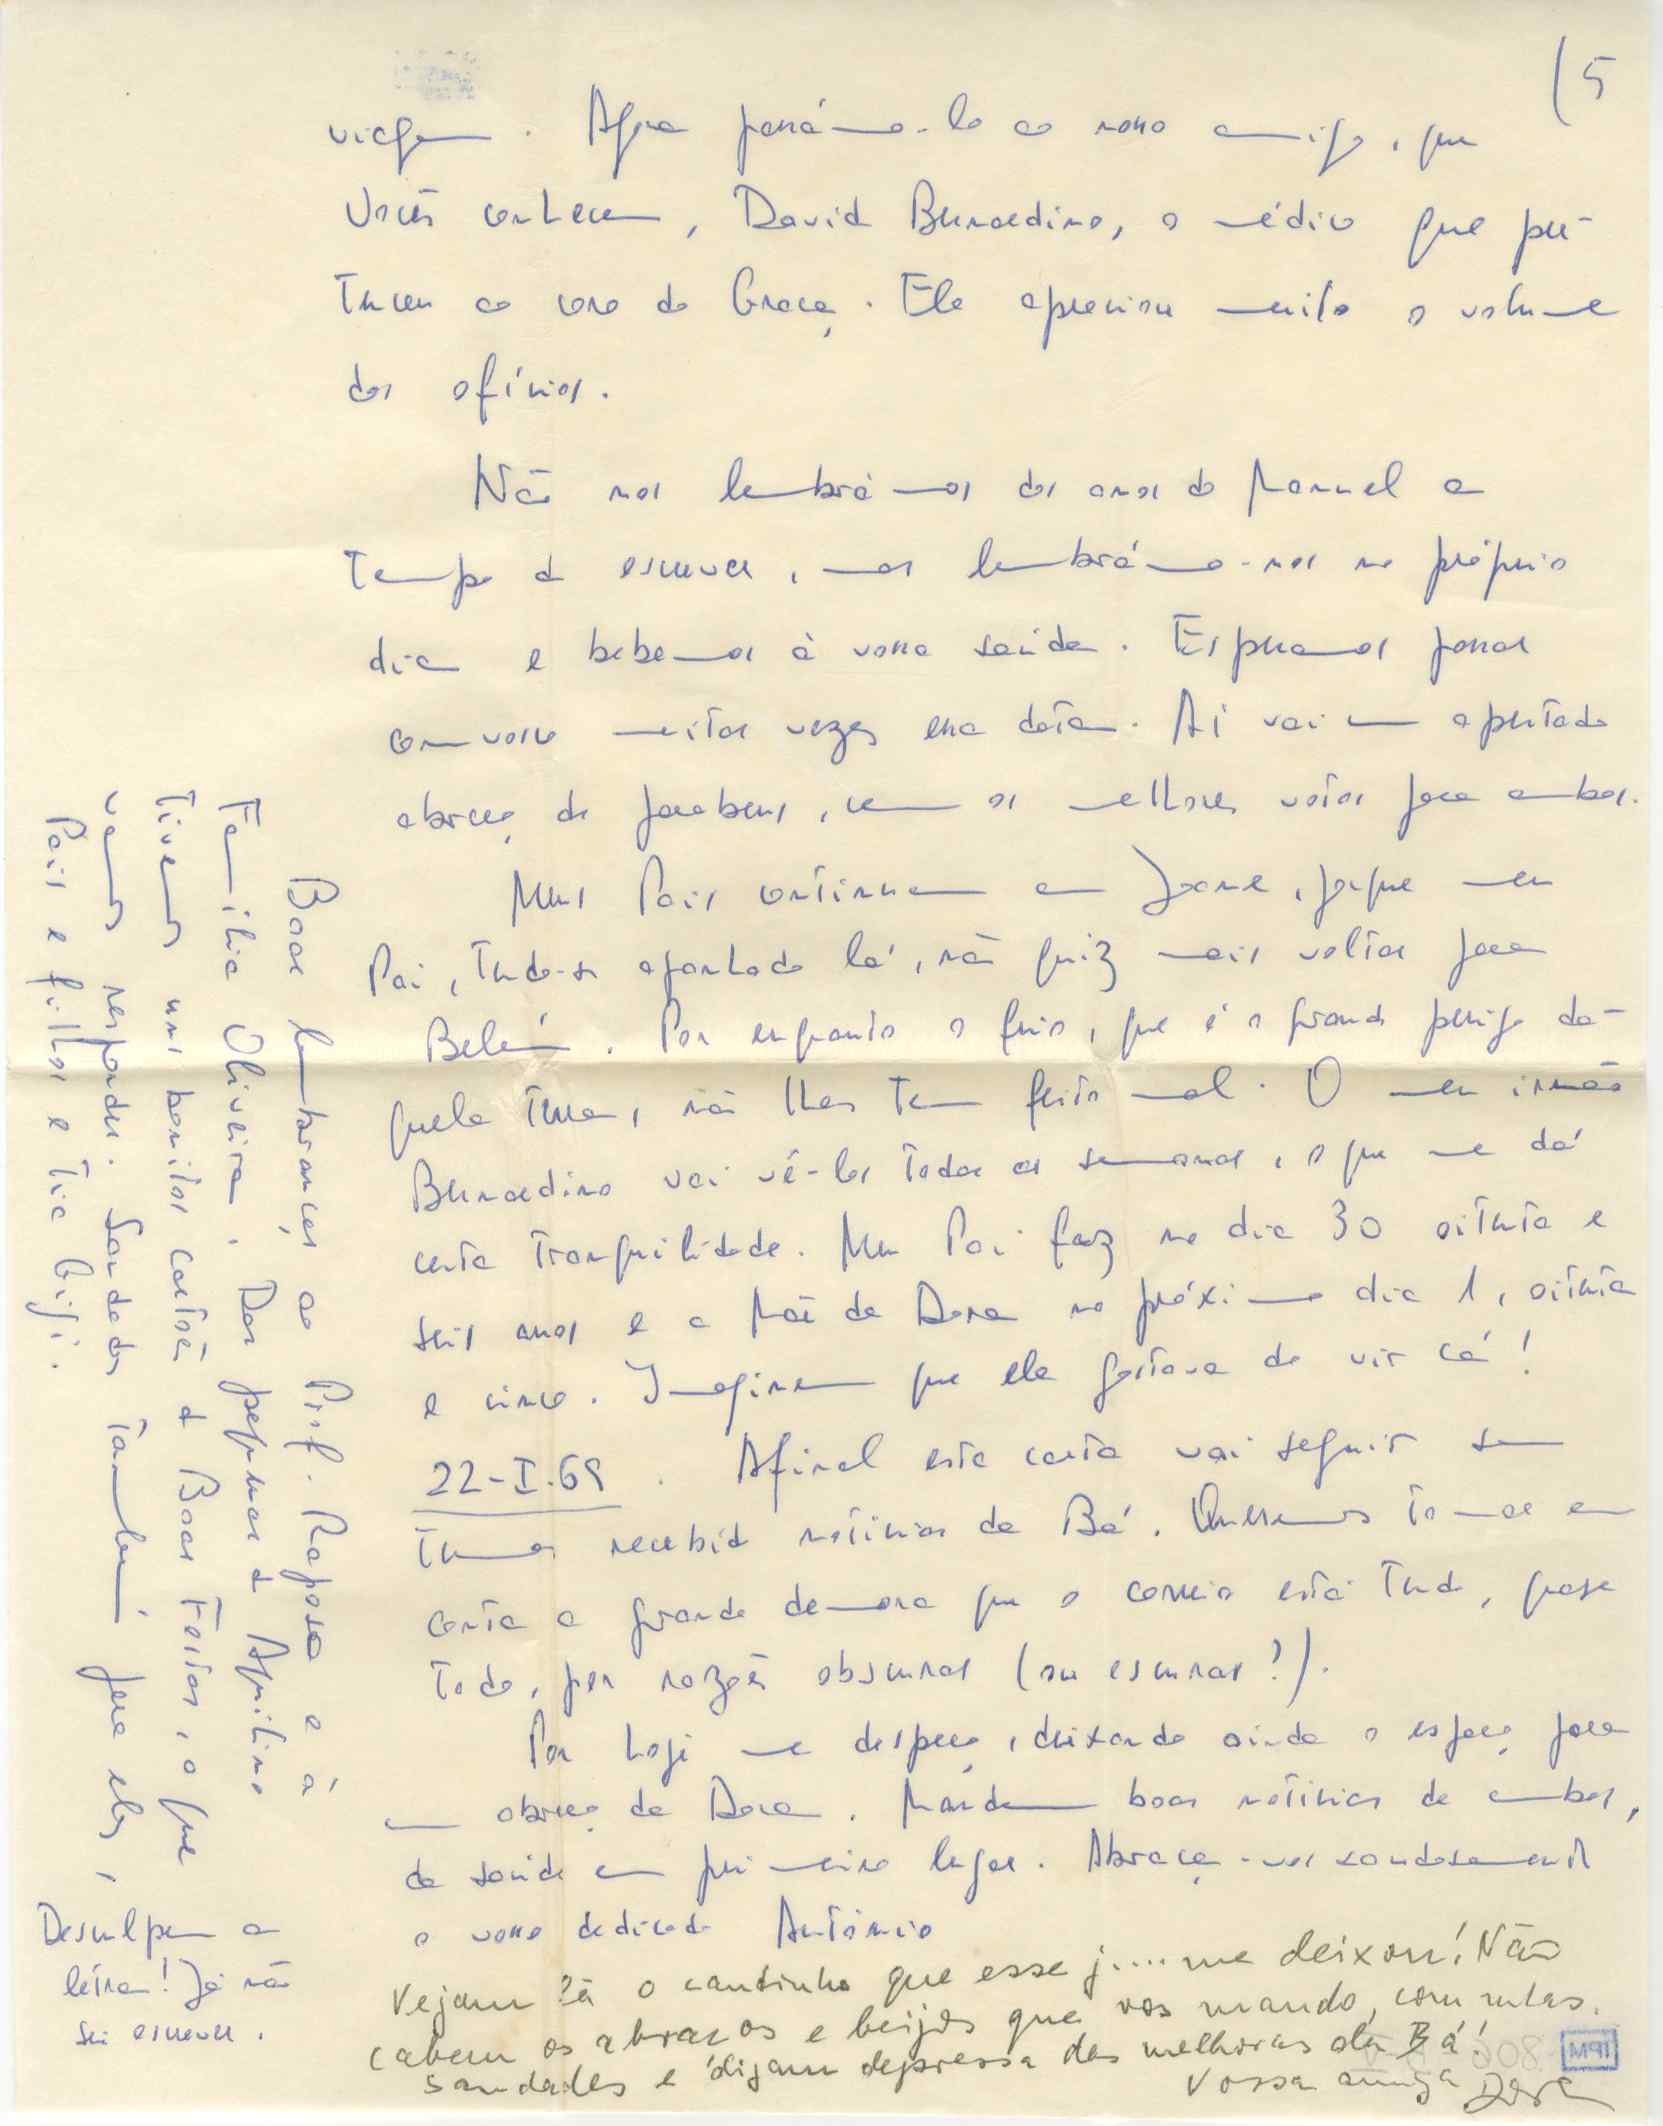 (5
viagem. Agora passámo-lo ao nosso amigo, que
Vocês conhecem, David Bernardino, o médico que per-
tenceu ao coro do Graça. Ele apreciou muito o volume
dos ofícios.
Não nos lembrámos dos anos do Manuel a
tempo de escrever, mas lembrámo-nos no próprio
dia e bebemos à vossa saúde. Esperamos passar
convosco muitas vezes essa data. Aí vai um apertado
abraço de parabens, com os melhores votos para ambos.
Meus Pais continuam em Joane, porque meu
Pai, tendo-se apanhado lá, não quiz mais voltar para
Belém. Por enquanto o frio, que é o grande perigo da-
quela terra, não lhes tem feito mal. O meu irmão
Bernardino vai vê-los todas as semanas, o que me dá
certa tranquilidade. Meu Pai faz no dia 30 oitenta e
seis anos e a Mãe da Dora no próximo dia 1, oitenta
e cinco. Imaginem que ela gostava de vir cá!
22-I-69. Afinal esta carta vai seguir sem
termos recebido notícias da Bá. Queremos tomar em
conta a grande demora que o correio está tendo, quase
todo, por razões obscuras (ou escuras?).
Por hoje me despeço, deixando ainda o espaço para
um abraço da Dora. Mandem boas notícias de ambos,
da saúde em primeiro lugar. Abraça-vos saudosamente
o vosso dedicado António
Vejam lá o cantinho que esse j.... me deixou! Não
cabem os abraços e beijos que vos mando, com mtas.
saudades e digam depressa das melhoras da Bá!
Vossa amiga Dora
Boas lembranças ao Prof. Raposo e á
Família Oliveira. Dos pequenos do Aquilino
tivemos uns bonitos cartões de Boas Festas, o que
vamos responder. Saudades também para eles,
Pais e filhos e Tia Gigi.
Desculpem a
letra! Já não
sei escrever.
MPI